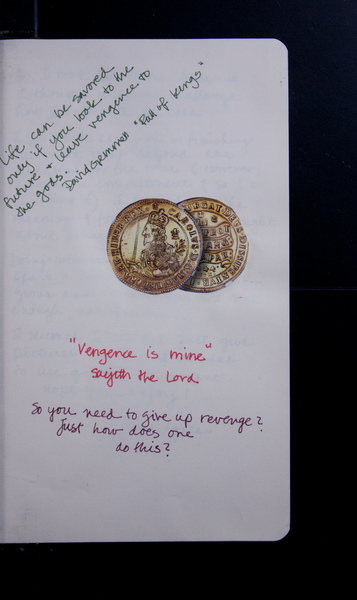 Life can be savored
only if you look to the
future + leave vengence to
the gods.
David Gemmell "Fall of Kings"
CAROLVS
"Vengence is mine"
saijeth the Lord
So you need to give up revenge?
Just how does one
do this?